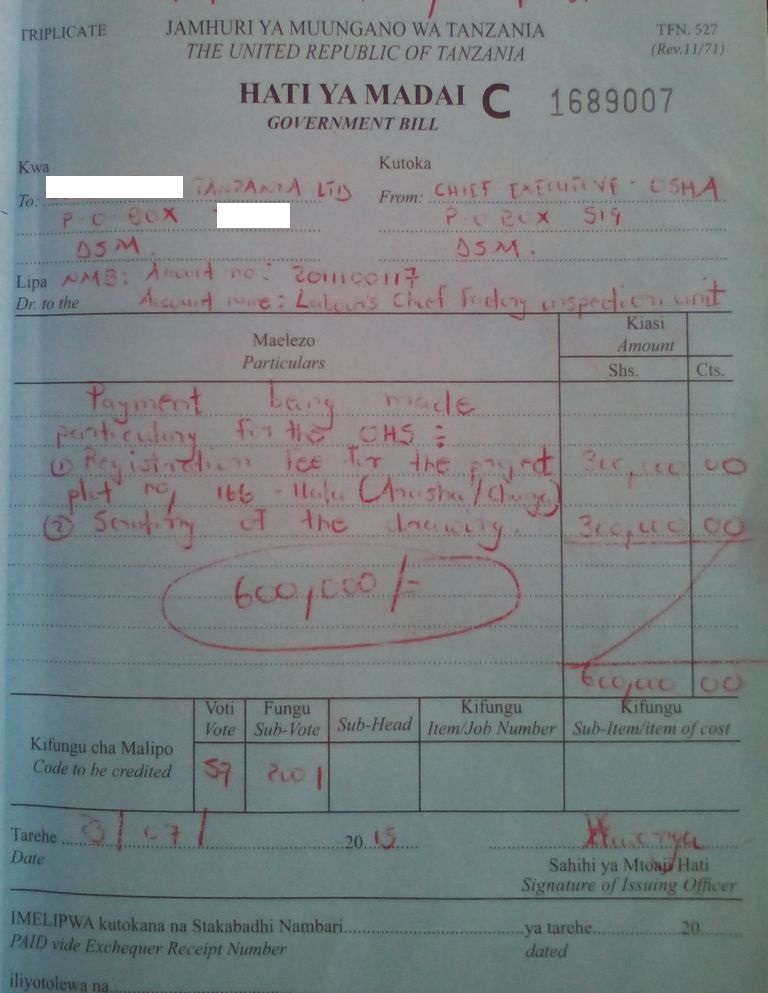 TRIPLICATE
JAMHURI YA MUUNGANO WA TANZANIA
THE UNITED REPUBLIC OF TANZANIA
TFN. 527
(Rev.11/71)
HATI YA MADAI C 1689007
GOVERNMENT BILL
Kwa
To: TANZANIA LTD
P.O BOX
DSM.
Kutoka
From: CHIEF EXECUTIVE - OSHA
P.O BOX 519
DSM.
Lipa NMB: Account no: 2011100117
Dr. to the Account name: Chief Factory inspection unit
Maelezo
Particulars
Kiasi
Amount
Shs. Cts.
Payment being made
for the OHS :
(1) Registration fee for the project 300,000 00
plot no, 166 -
(2) Scrutiny of the drawing. 300,000 00
600,000/=
600,000 00
Kifungu cha Malipo
Code to be credited
Voti
Vote
57
Fungu
Sub-Vote
2001
Sub-Head
Kifungu
Item/Job Number
Kifungu
Sub-Item/item of cost
Tarehe / 07 / 2015
Date
Sahihi ya Mtoaji Hati
Signature of Issuing Officer
IMELIPWA kutokana na Stakabadhi Nambari ya tarehe 20
PAID vide Exchequer Receipt Number dated
iliyotolewa na